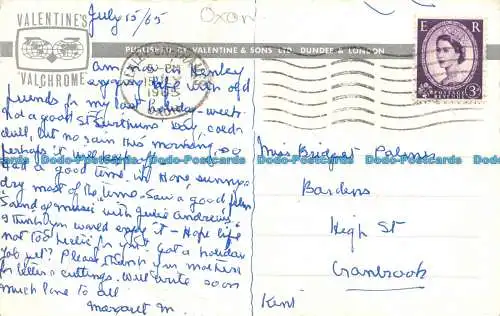 July 15/65
Oxon
VALENTINE'S
"VALCHROME"
PUBLISHED BY VALENTINE & SONS LTD DUNDEE & LONDON
E R
POSTAGE REVENUE
3D
Am now in Henley
enjoying life with old
friends for my last holiday-week.
Got a good St Swithuns Day, cold &
dull, but no rain this morning, so
perhaps it will keep
Had a good time in Hove, sunny &
dry most of the time. Saw a good film
"Sound of music" with Julie Andrews.
I think you would enjoy it - Hope life
not too hectic for you. Got a holiday
job yet? Please thank your mother
for letter & cuttings. Will write soon
Much love to all
Margaret M.
Miss Bridget Palmer
Bardens
High St
Cranbrook
Kent
Dodo-Postcards